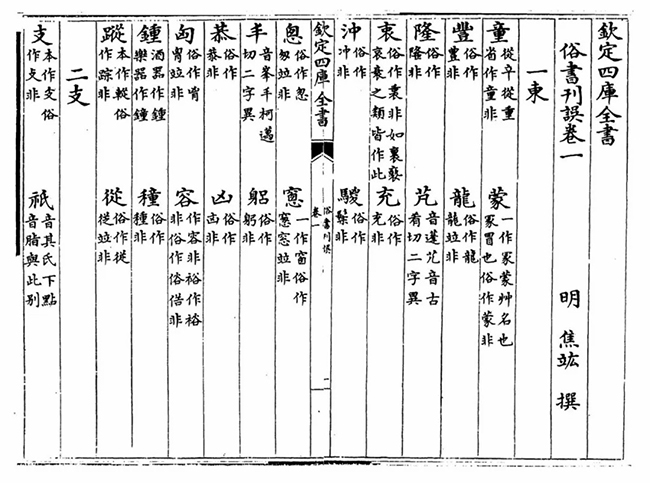 欽定四庫全書
俗書刊誤卷一
明 焦竑 撰
一東
童 從䇂從重省作童非 蒙 一作冡蒙艸名也冡冒也俗作蒙非
豐 俗作豊非 龍 俗作竝非
隆 俗作隆非 芃 音蓬芃音古肴切二字異
衷 俗作衷非如裏褻哀裵之類皆作此 充 俗作充非
沖 俗作冲非 騣 俗作鬃非
欽定四庫全書
俗書刊誤
卷一
悤 俗作怱匆竝非 窻 一作窗俗作窓竝非
丰 音峯丯柯邁切二字異 躳 俗作躬非
恭 俗作恭非 凶 俗作㐫非
匈 俗作胷竝非 容 作容非裕作𥙿非俗作俗偕非
鍾 酒器作鍾樂器作鐘 種 俗作種非
蹤 本作䡮俗作踪非 從 俗作従竝非
二支
支 本作支俗作攴非 祇 音其氏下點音脂與此别